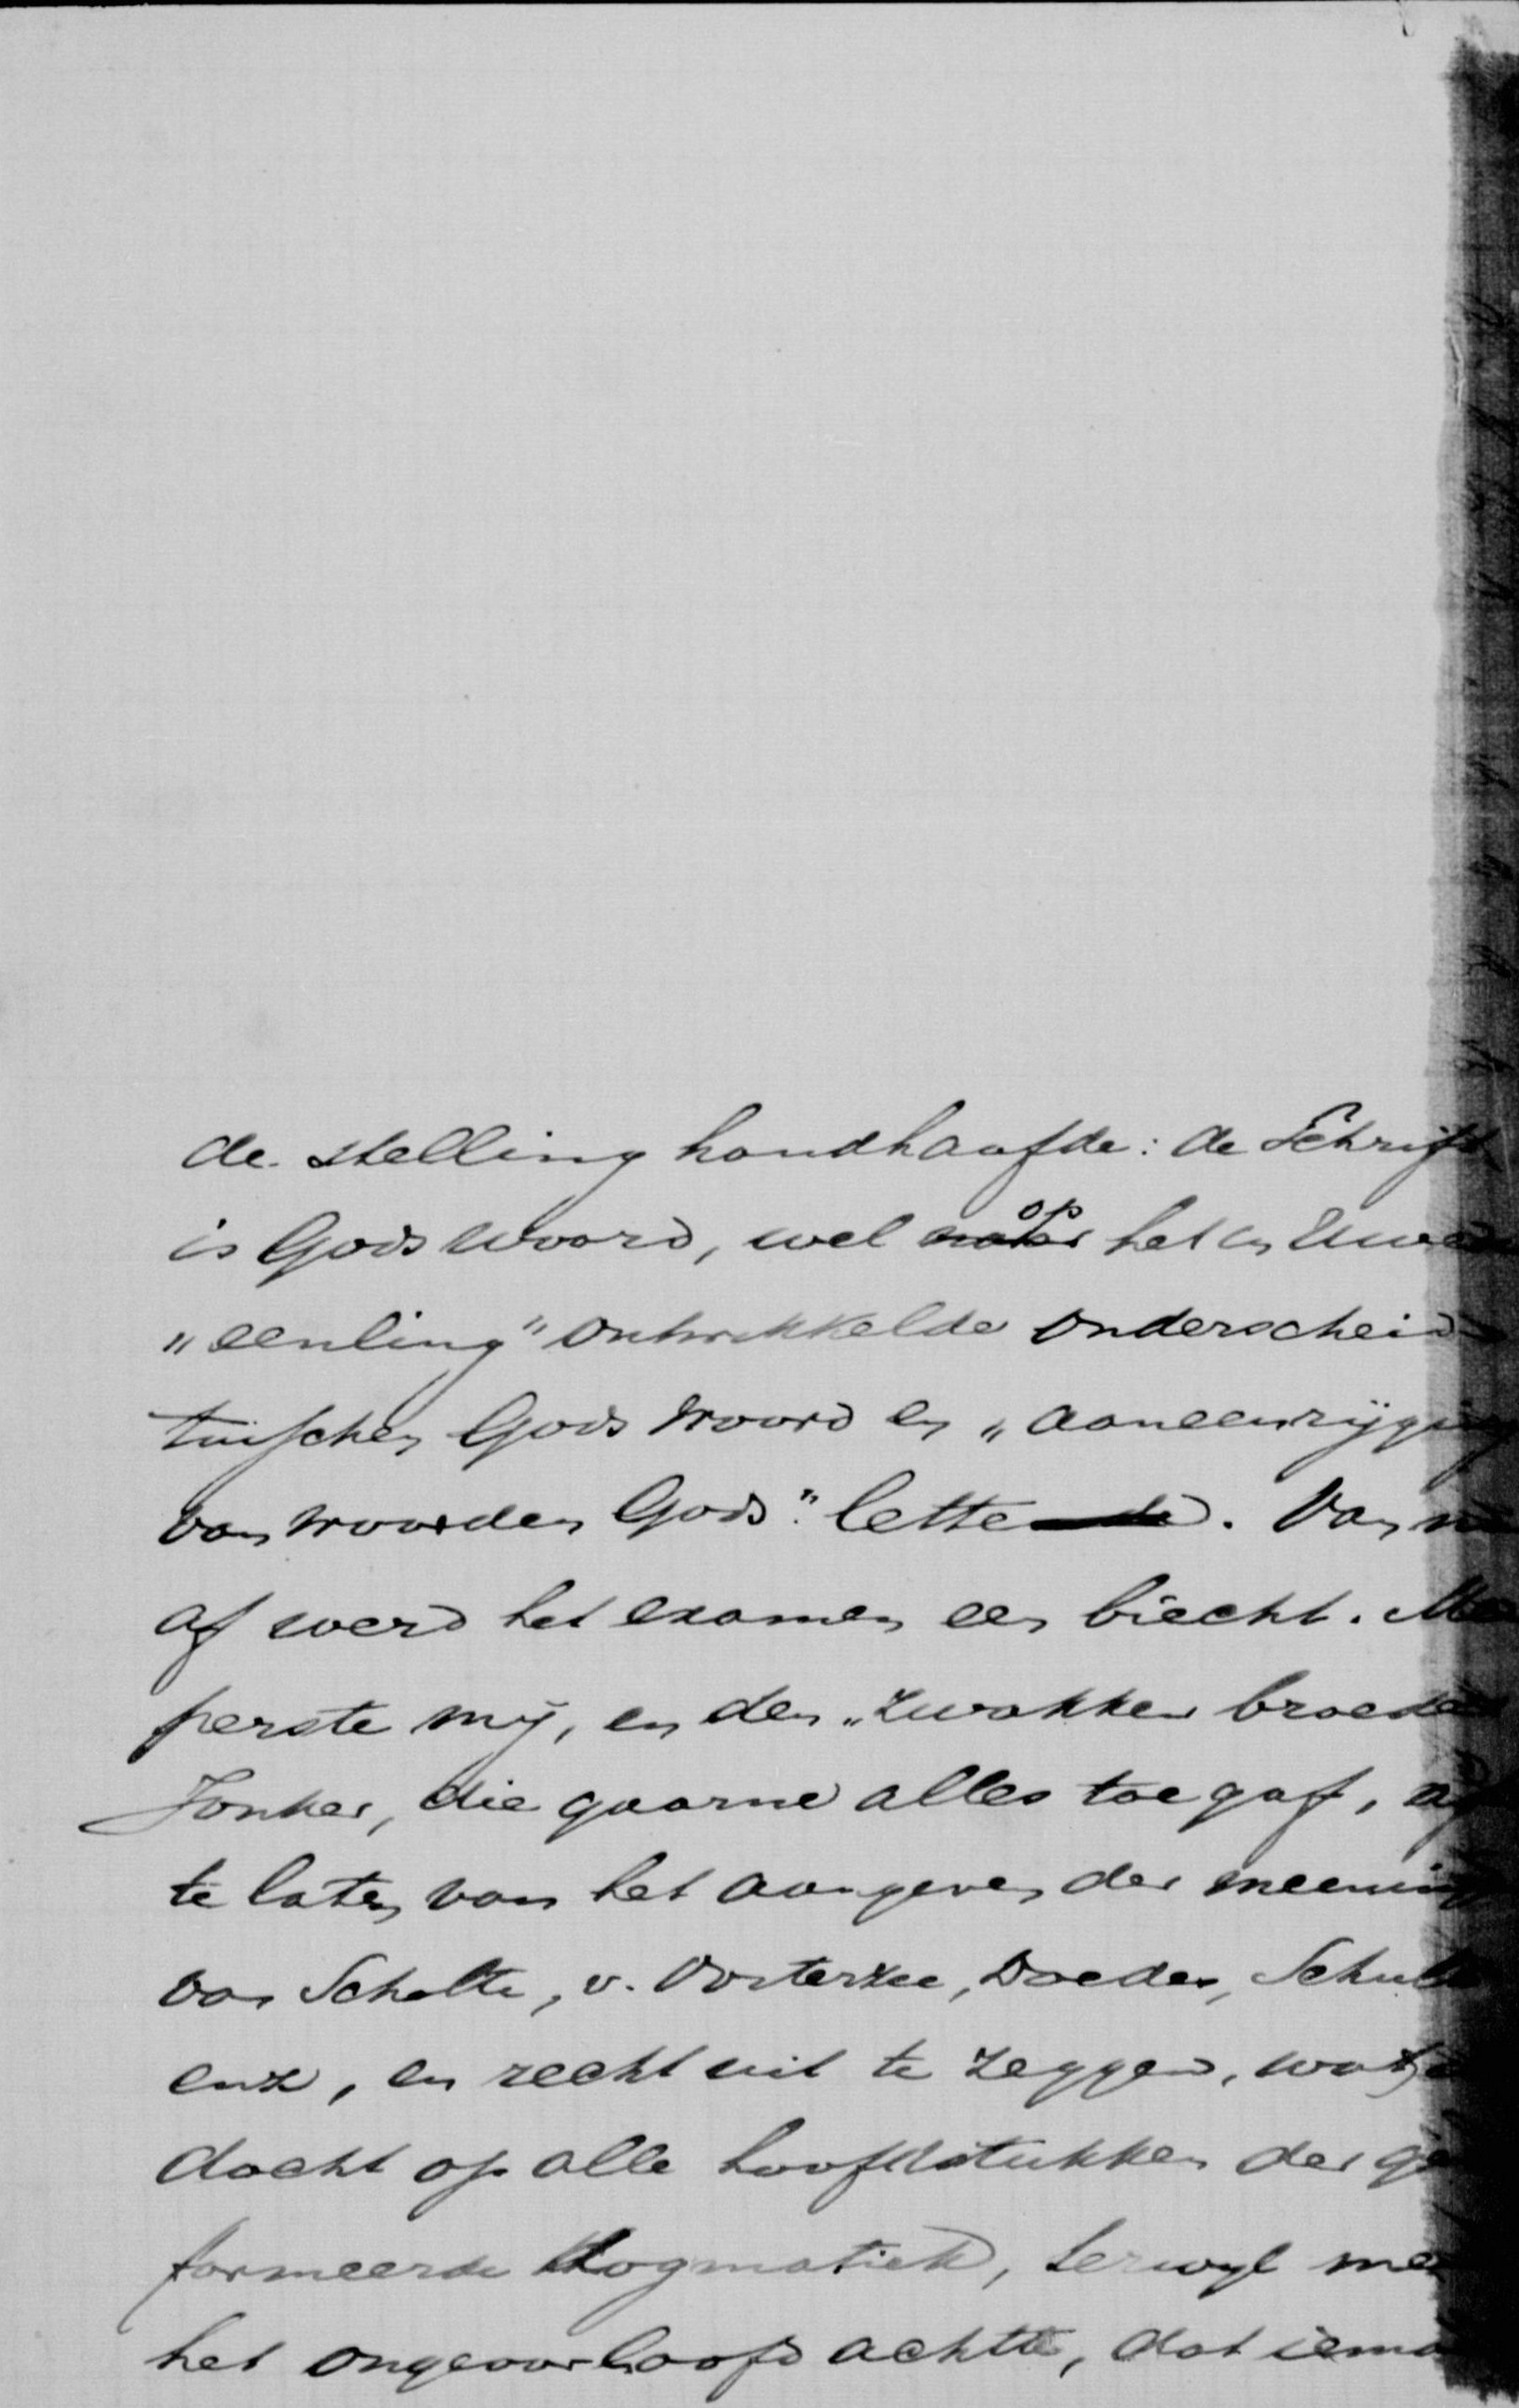 de stelling handhaafde: de Schrift
is Gods woord, wel op het in Uwe
„eenling" ontwikkelde onderscheid
tusschen Gods woord en „aaneenrijging
van woorden Gods" lette. Van
af werd het examen een biecht. Me
perste mij, en den „zwakken broeder
Jonker, die gaarne alles toegaf, af
te laten van het aangeven der meening
van Scholte, v. Oosterzee, Doedes, Schult
enz, en rechtuit te zeggen, wat
dacht op alle hoofdstukken der ge
formeerde dogmatiek, terwijl men
het ongeoorloofd achtte, dat iema